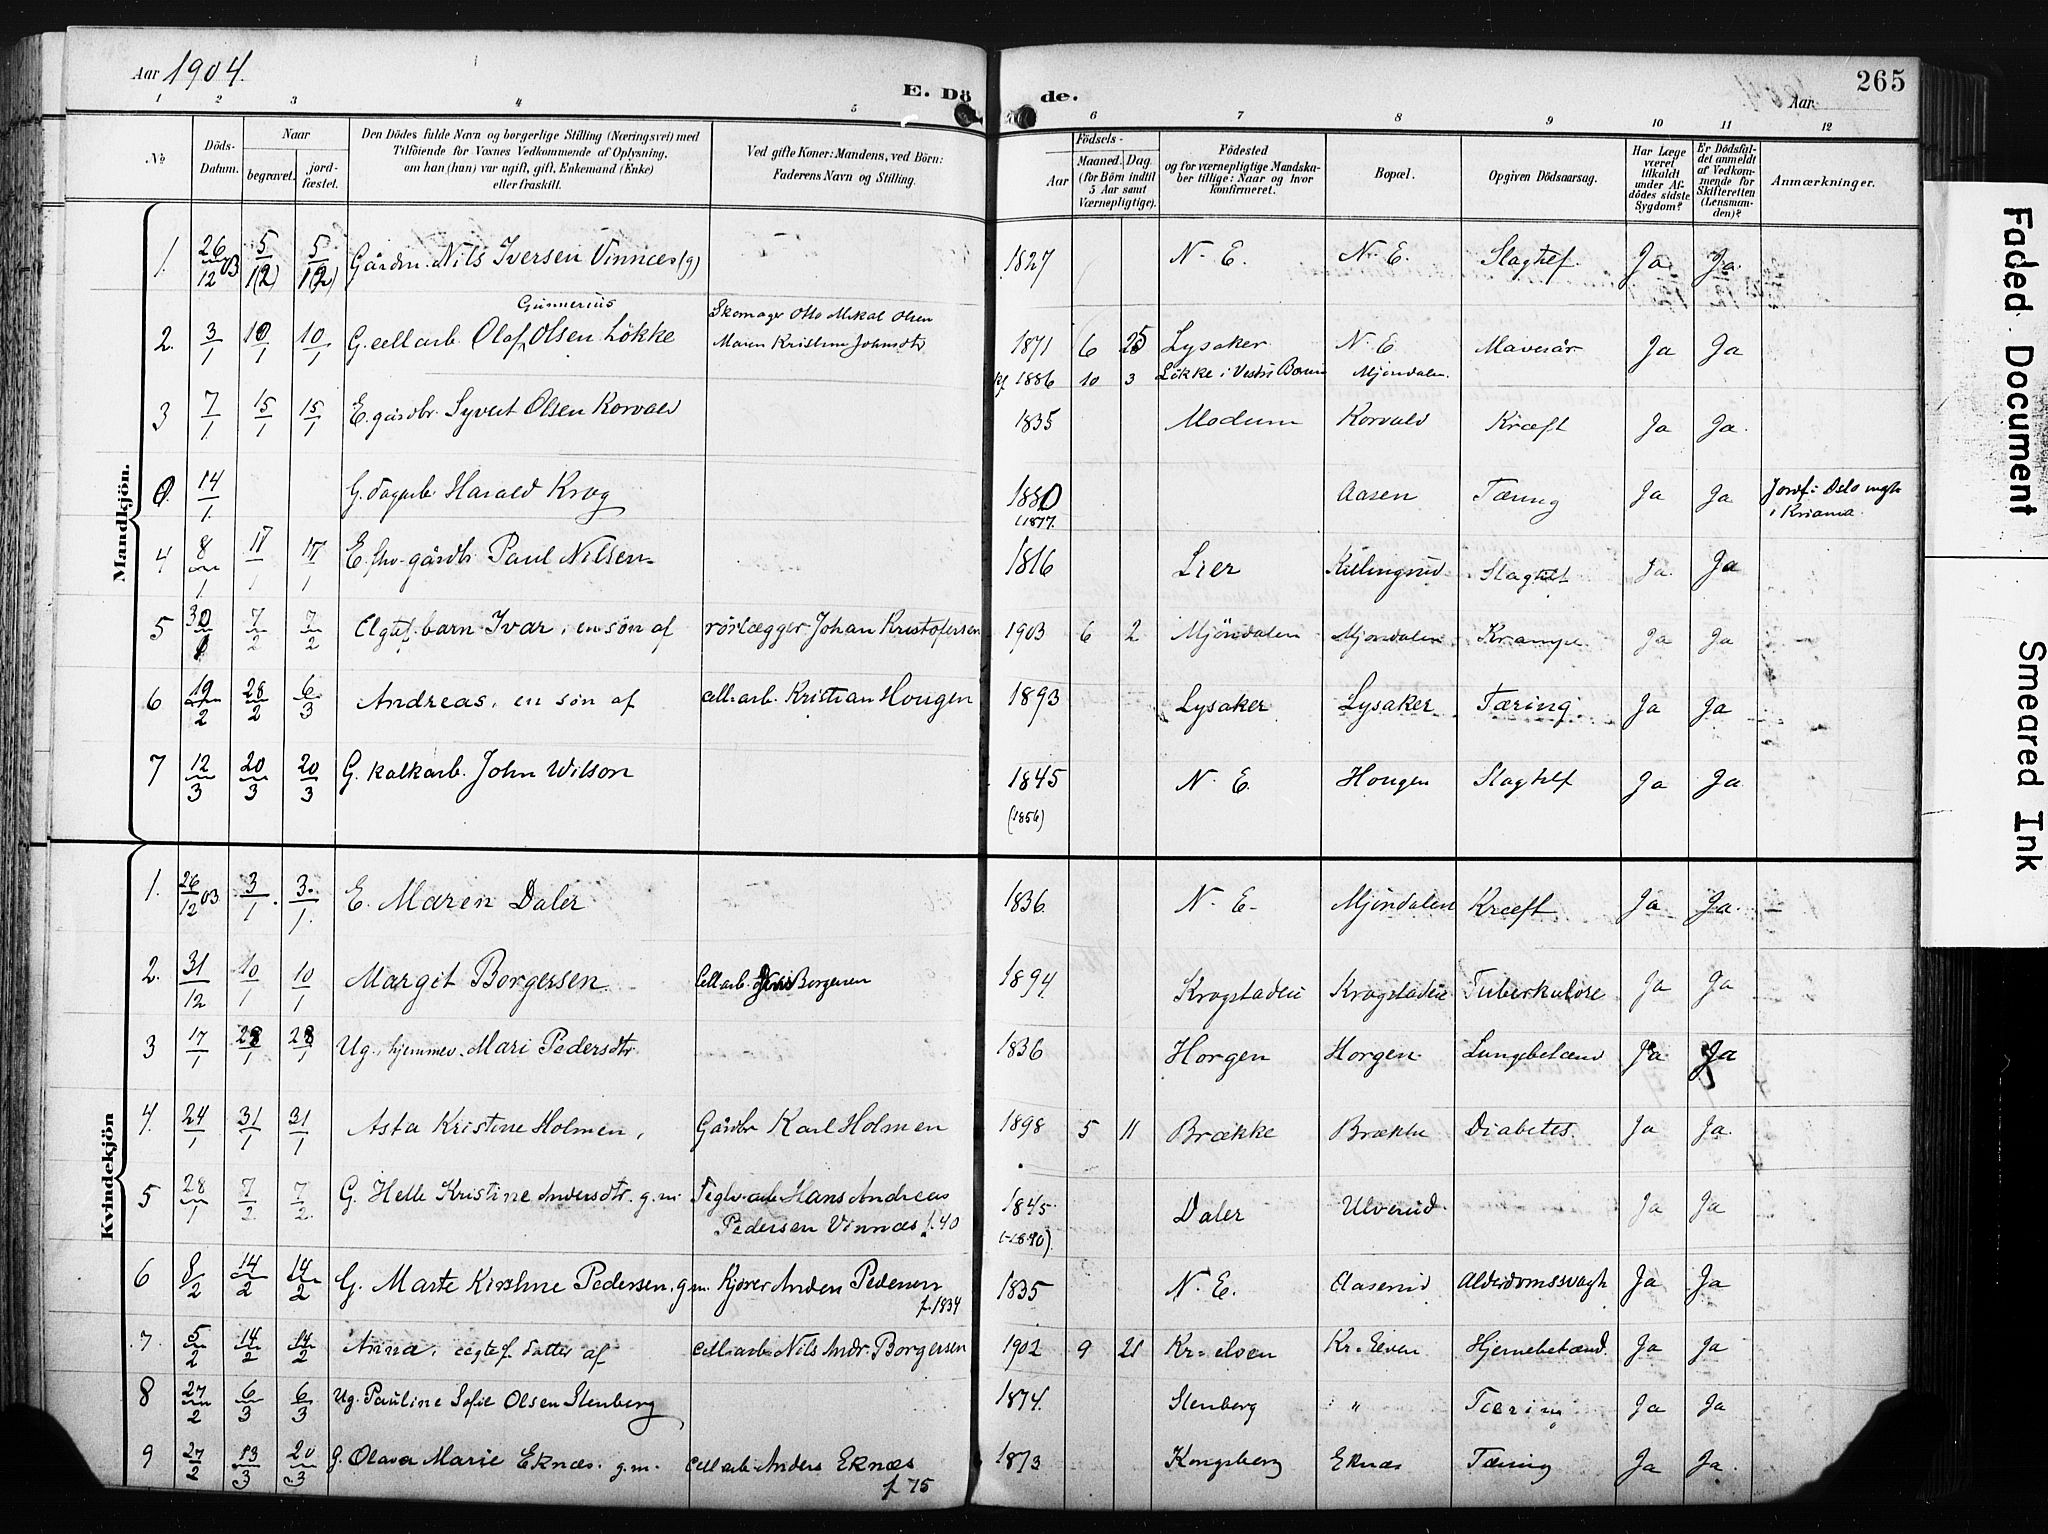 Aar 1904.
E. Dö de.
Aar
265
1 2 3 4 5 6 7 8 9 10 11 12
No
Döds-Datum.
Naar begravet. jord-fæstet.
Den Dödes fulde Navn og borgerlige Stilling (Næringsvei) med
Tilföiende for Voxnes Vedkommende af Oplysning,
om han (hun) var ugift, gift, Enkemand (Enke)
eller fraskilt.
Ved gifte Koner: Mandens, ved Börn:
Faderens Navn og Stilling.
Födsels-
Aar Maaned. Dag
(for Börn indtil
5 Aar samt
Værnepligtige).
Födested
og for værnepligtige Mandska-
ber tillige: Naar og hvor
konfirmeret.
Bopæl.
Opgiven Dödsaarsag.
Har Læge
været
tilkaldt
under Af-
dödes sidste
Sygdom?
Er Dödsfal-
det anmeldt
af Vedkom-
mende for
Skifteretten
(Lensman-
den)?
Anmærkninger.
Mandkjön.
1. 26/12 03 5/1 (2) 5/1 (2) Gårdm. Nils Iversen Vinnæs (g) 1827 N. E. N. E. Slagtilf. Ja Ja.
Gunnerius Skomager Otto Mikal Olsen
2. 3/1 10/1 10/1 G. cellarb. Olaf Olsen Lökke Maren Kristine Johnsdtr 1871 6 25 Lysaker N. E. Mavesår Ja Ja
kf 1886 10 3 Lökke i Vestre Bærum Mjöndalen.
3 7/1 15/1 15/1 E. gårdbr. Syvert Olsen Korvald 1835 Modum Korvald Kræft Ja Ja.
0. 14/1. G. dagarb. Harald Krog 1880 Aasen Tæring Ja Ja Jordf. i Oslo mgh
(1877. i Kriania.
4 8/1 17/1 17/1 E. fhv. gårdbr. Paul Nilsen 1816 Lier Killingrud Slagtilf Ja. Ja
5 30/1 7/2 7/2 Ægtef. barn Ivar, en sön af rörlægger Johan Kristofersen 1903 6 2 Mjöndalen Mjöndalen Krampe Ja Ja
6 19/2 28/2 6/3 Andreas, en sön af cell.arb. Kristian Hougen 1893 Lysaker Lysaker Tæring Ja Ja
7 12/3 20/3 20/3 G. kalkarb. John Wilson 1845 N. E. Hougen Slagtilf Ja Ja.
(1856)
Kvindekjön
1. 26/12 03 3/1. 3./1. E. Maren Daler 1836 N. E. Mjöndalen Kræft Ja Ja.
2. 31/12 10/1 10/1 Margit Borgersen Cellarb. Borgersen 1894 Krogstadeie Krogstadeie Tuberkulose Ja Ja
3 17/1 28/1 28/1 Ug. hjemmev. Mari Pedersdtr 1836 Horgen Horgen. Lungebetænd Ja Ja
4. 24/1 31/1 31/1 Asta Kristine Holmen, Gårdbr Karl Holmen 1898 5 11 Brække Brække Diabetes. Ja Ja.
5 28/1 7/2 7/2. G. Helle Kristine Andersdtr. g.m. Teglv.arb Hans Andreas 1845 Daler Ulverud Ja Ja
Pedersen Vinnæs f. 40 (-1840).
6 8/2 14/2 14/2 G. Marte Kirstine Pedersen. g.m. Kjörer Anders Pedersen 1835 N. E. Aaserud Alderdomssvagh Ja Ja
f. 1834
.7. 5/2 14/2 14/2 Anna, ægtef. datter af cell.arb. Nils Andr. Borgersen 1902 9 21 Kr-elven Kr. Elven Hjernebetænd. Ja Ja
8 27/2 6/3 6/3 Ug. Pauline Sofie Olsen Stenberg 1874. Stenberg " Tæring Ja Ja
9 27/2 13/3 20/3 G. Olava Marie Eknæs. g.m. Cellarb. Anders Eknæs 1873 Kongsberg Eknæs Tæring Ja Ja.
f 75
Faded Document
Smeared Ink